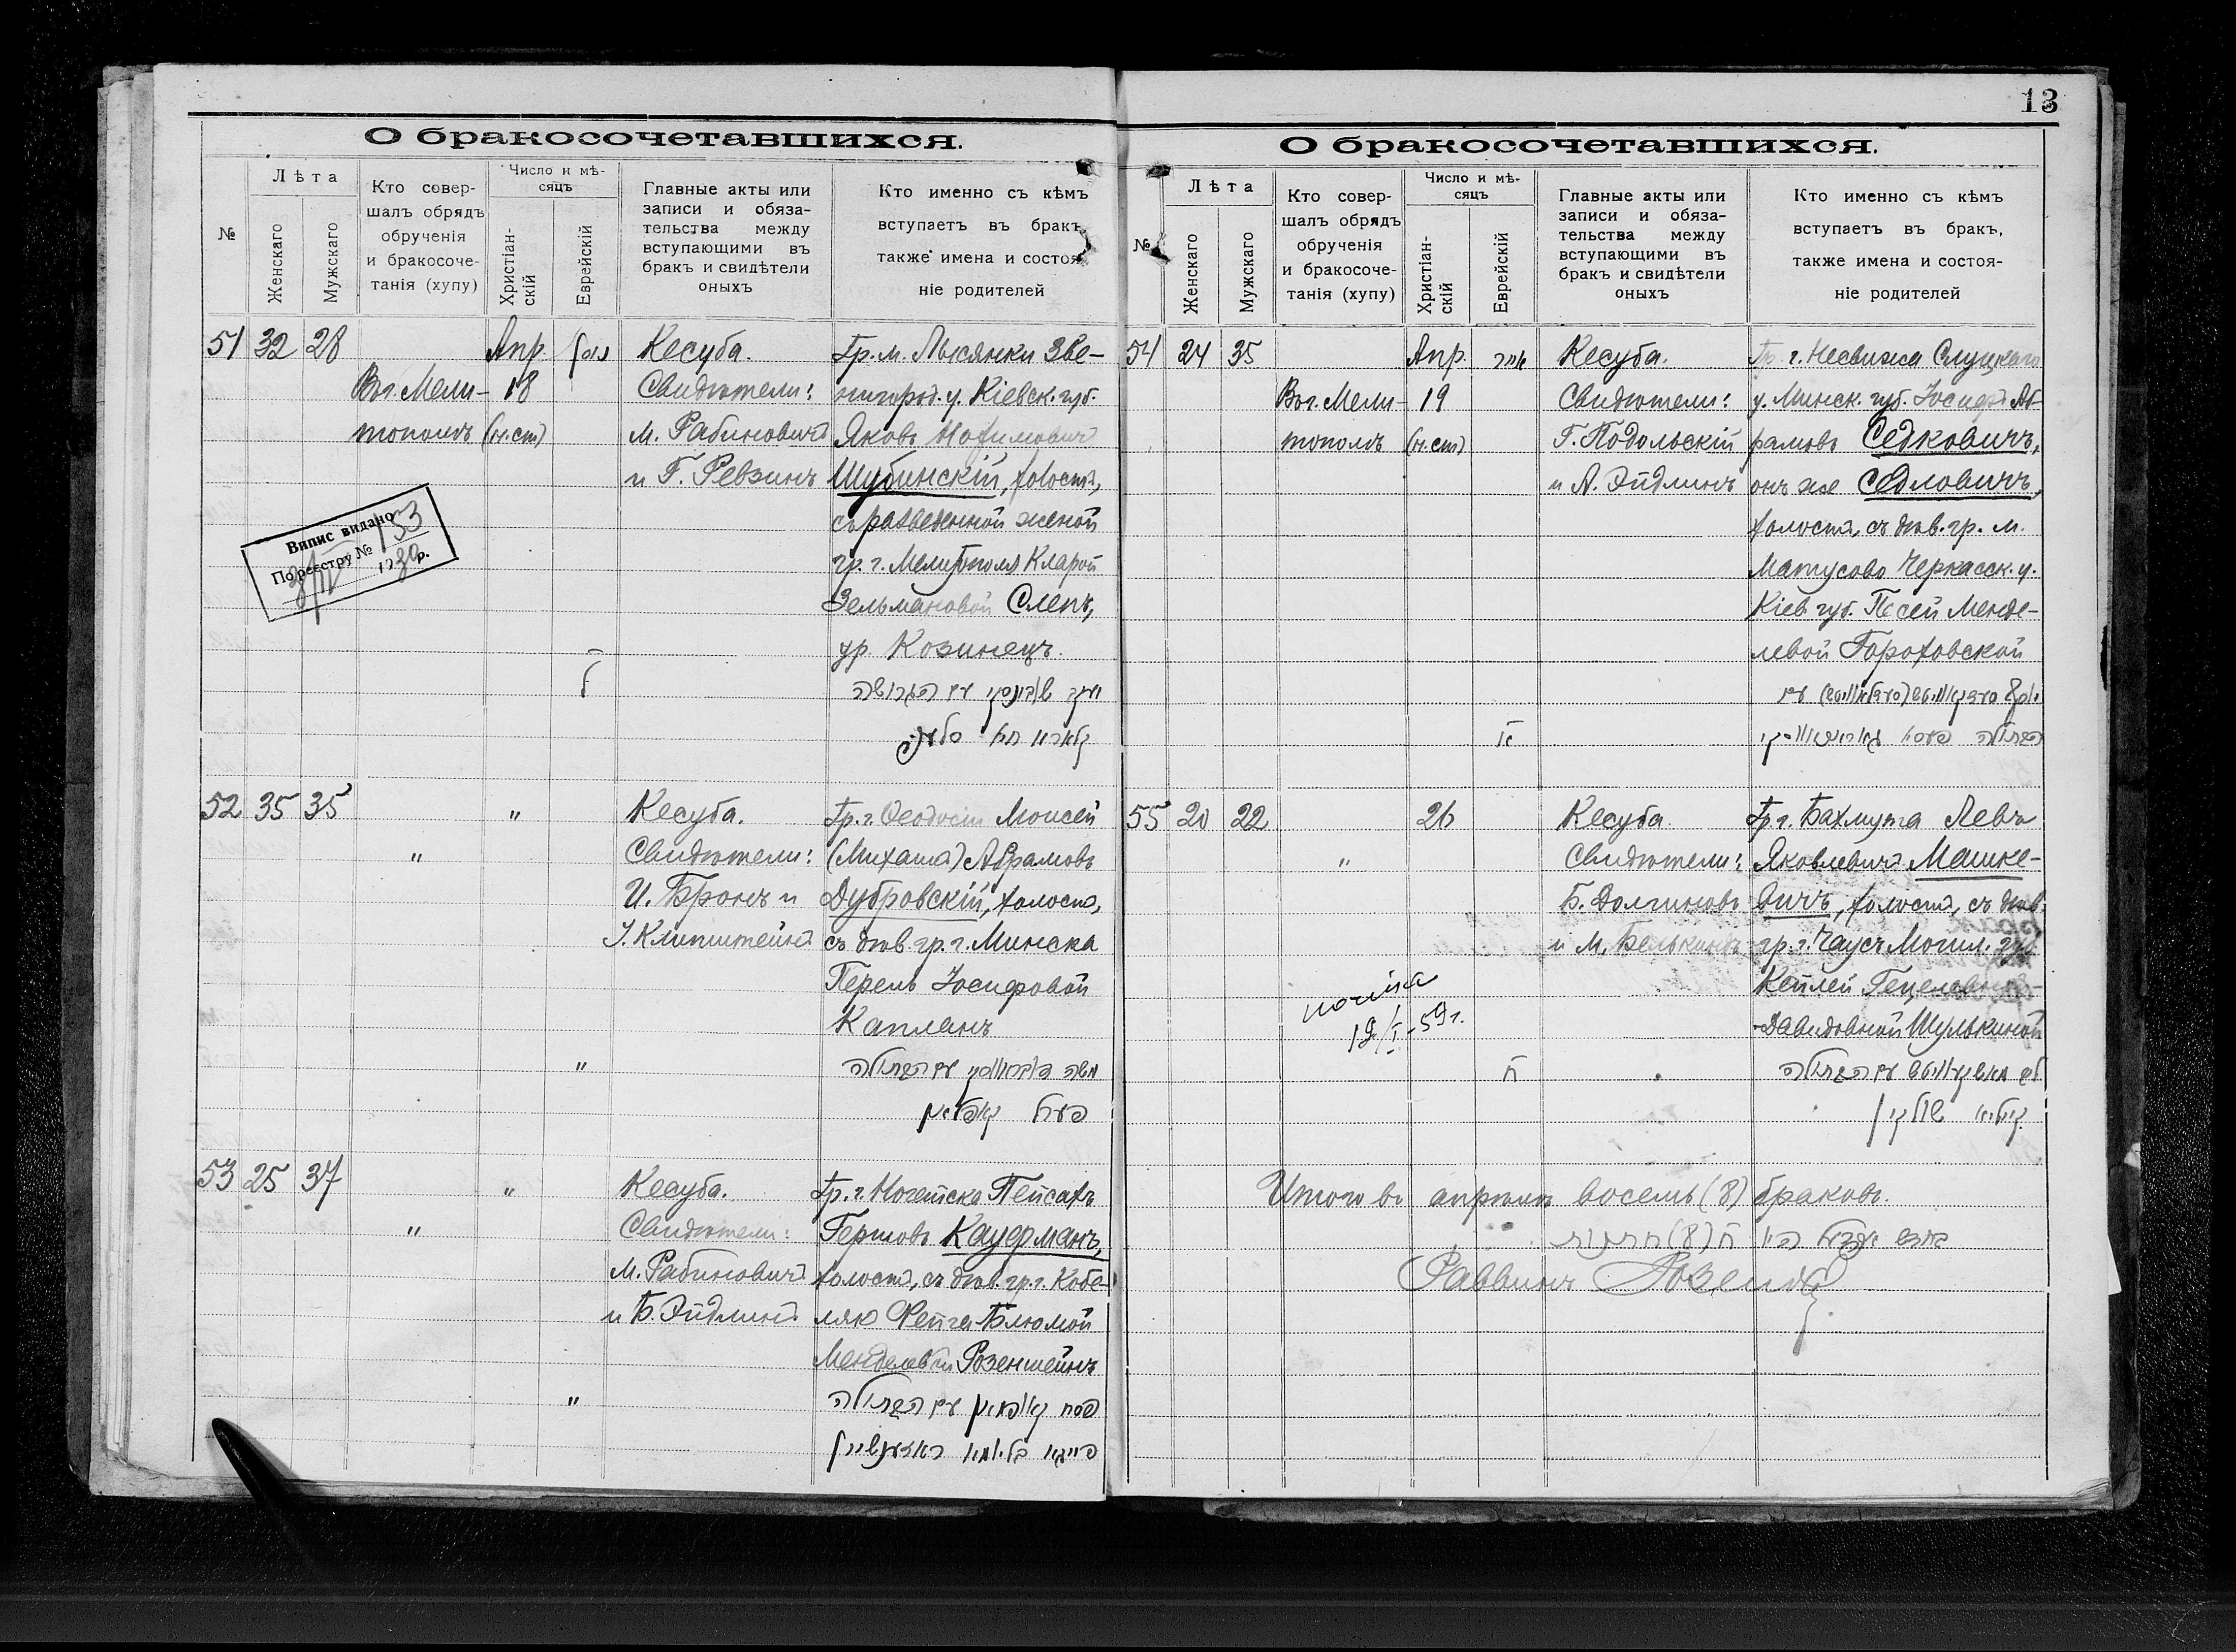 13
О бракосочетавшихся.
№
Лѣта
Женскаго
Мужскаго
Кто совер-
шалъ обрядъ
обрученія
и бракосоче-
танія (хупу)
Число и мѣ-
сяцъ
Христіан-
скій
Еврейскій
Главные акты или
записи и обяза-
тельства между
вступающими въ
бракъ и свидѣтели
оныхъ
Кто именно съ кѣмъ
вступаетъ въ бракъ,
также имена и состоя-
ніе родителей
51 32 28
Въ г. Мели-
тополѣ
Апр.
18
(н.ст)
ניסן
ל
Кесуба.
Свидѣтели:
М. Рабиновичъ
и Г. Ревзинъ
Гр. м. Лысянки Зве-
нигород. у. Кіевск. губ.
Яковъ Нохимовичъ
Шубинскій, холостъ,
съ разведенной женой
гр. г. Мелитополя Кларой
Зельмановой Слепъ,
ур. Козинецъ.
יעקב שובינסקי עם הגרושה
קלארא
Випис видано
По реестру № 153
1930 р.
52 35 35
"
"
"
Кесуба.
Свидѣтели:
И. Бронъ и
І. Клипштейнъ
Гр. г. Ѳеодосіи Моисей
(Михаилъ) Абрамовъ
Дубровскій, холостъ,
съ дѣв. гр. г. Минска
Перель Іосифовой
Капланъ
משה דובראווסקי עם הבתולה
פערל קאפלאן
53 25 37
"
"
"
Кесуба.
Свидѣтели:
М. Рабиновичъ
и Б. Эйдлинъ
Гр. г. Ногайска Пейсахъ
Гершовъ Кауфманъ,
холостъ, съ дѣв. гр. г. Кобе-
ляк Фейга Блюмой
Менделевой Розенштейнъ
פסח קאופמאן עם הבתולה
פייגא בליומא ראזענשטיין
О бракосочетавшихся.
№
Лѣта
Женскаго
Мужскаго
Кто совер-
шалъ обрядъ
обрученія
и бракосоче-
танія (хупу)
Число и мѣ-
сяцъ
Христіан-
скій
Еврейскій
Главные акты или
записи и обяза-
тельства между
вступающими въ
бракъ и свидѣтели
оныхъ
Кто именно съ кѣмъ
вступаетъ въ бракъ,
также имена и состоя-
ніе родителей
54 24 35
Въ г. Мели-
тополѣ
Апр.
19
(н.ст)
אייר
א
Кесуба.
Свидѣтели:
Г. Подольскій
и А. Эйдлинъ
Гр. г. Несвижа Слуцкаго
у. Минск. губ. Іосифъ Аб-
рамовъ Седковичъ,
онъ же Седловичъ,
холостъ, съ дѣв. гр. м.
Матусово Черкасск. у.
Кіев. губ. Песей Менде-
левой Гороховской
יוסף סעדקאוויטש (סעדלאוויטש) עם
הבתולה פעסא גאראחאווסקי
55 20 22
"
26
ח
Кесуба.
Свидѣтели:
Б. Долгиновъ
и М. Белькинъ
Гр. г. Бахмута Левъ
Яковлевичъ Машке-
вичъ, холостъ, съ дѣв.
гр. г. Чаусъ Могил. губ.
Кейлей Гецелевной-
Давидовной Шулькиной
לב מאשקעוויטש עם הבתולה
קיילא שולקין
19/I-59 г.
Итого въ апрѣлѣ восемь (8) браковъ.
בחדש אפריל היו ח (8) חתונות
Раввинъ